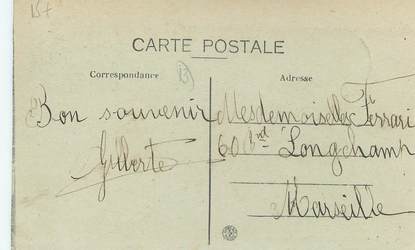 CARTE POSTALE
Correspondance
Adresse
Bon souvenir
Gilberte
Mesdemoiselles Ferrari
60 Bd Longchamp
Marseille